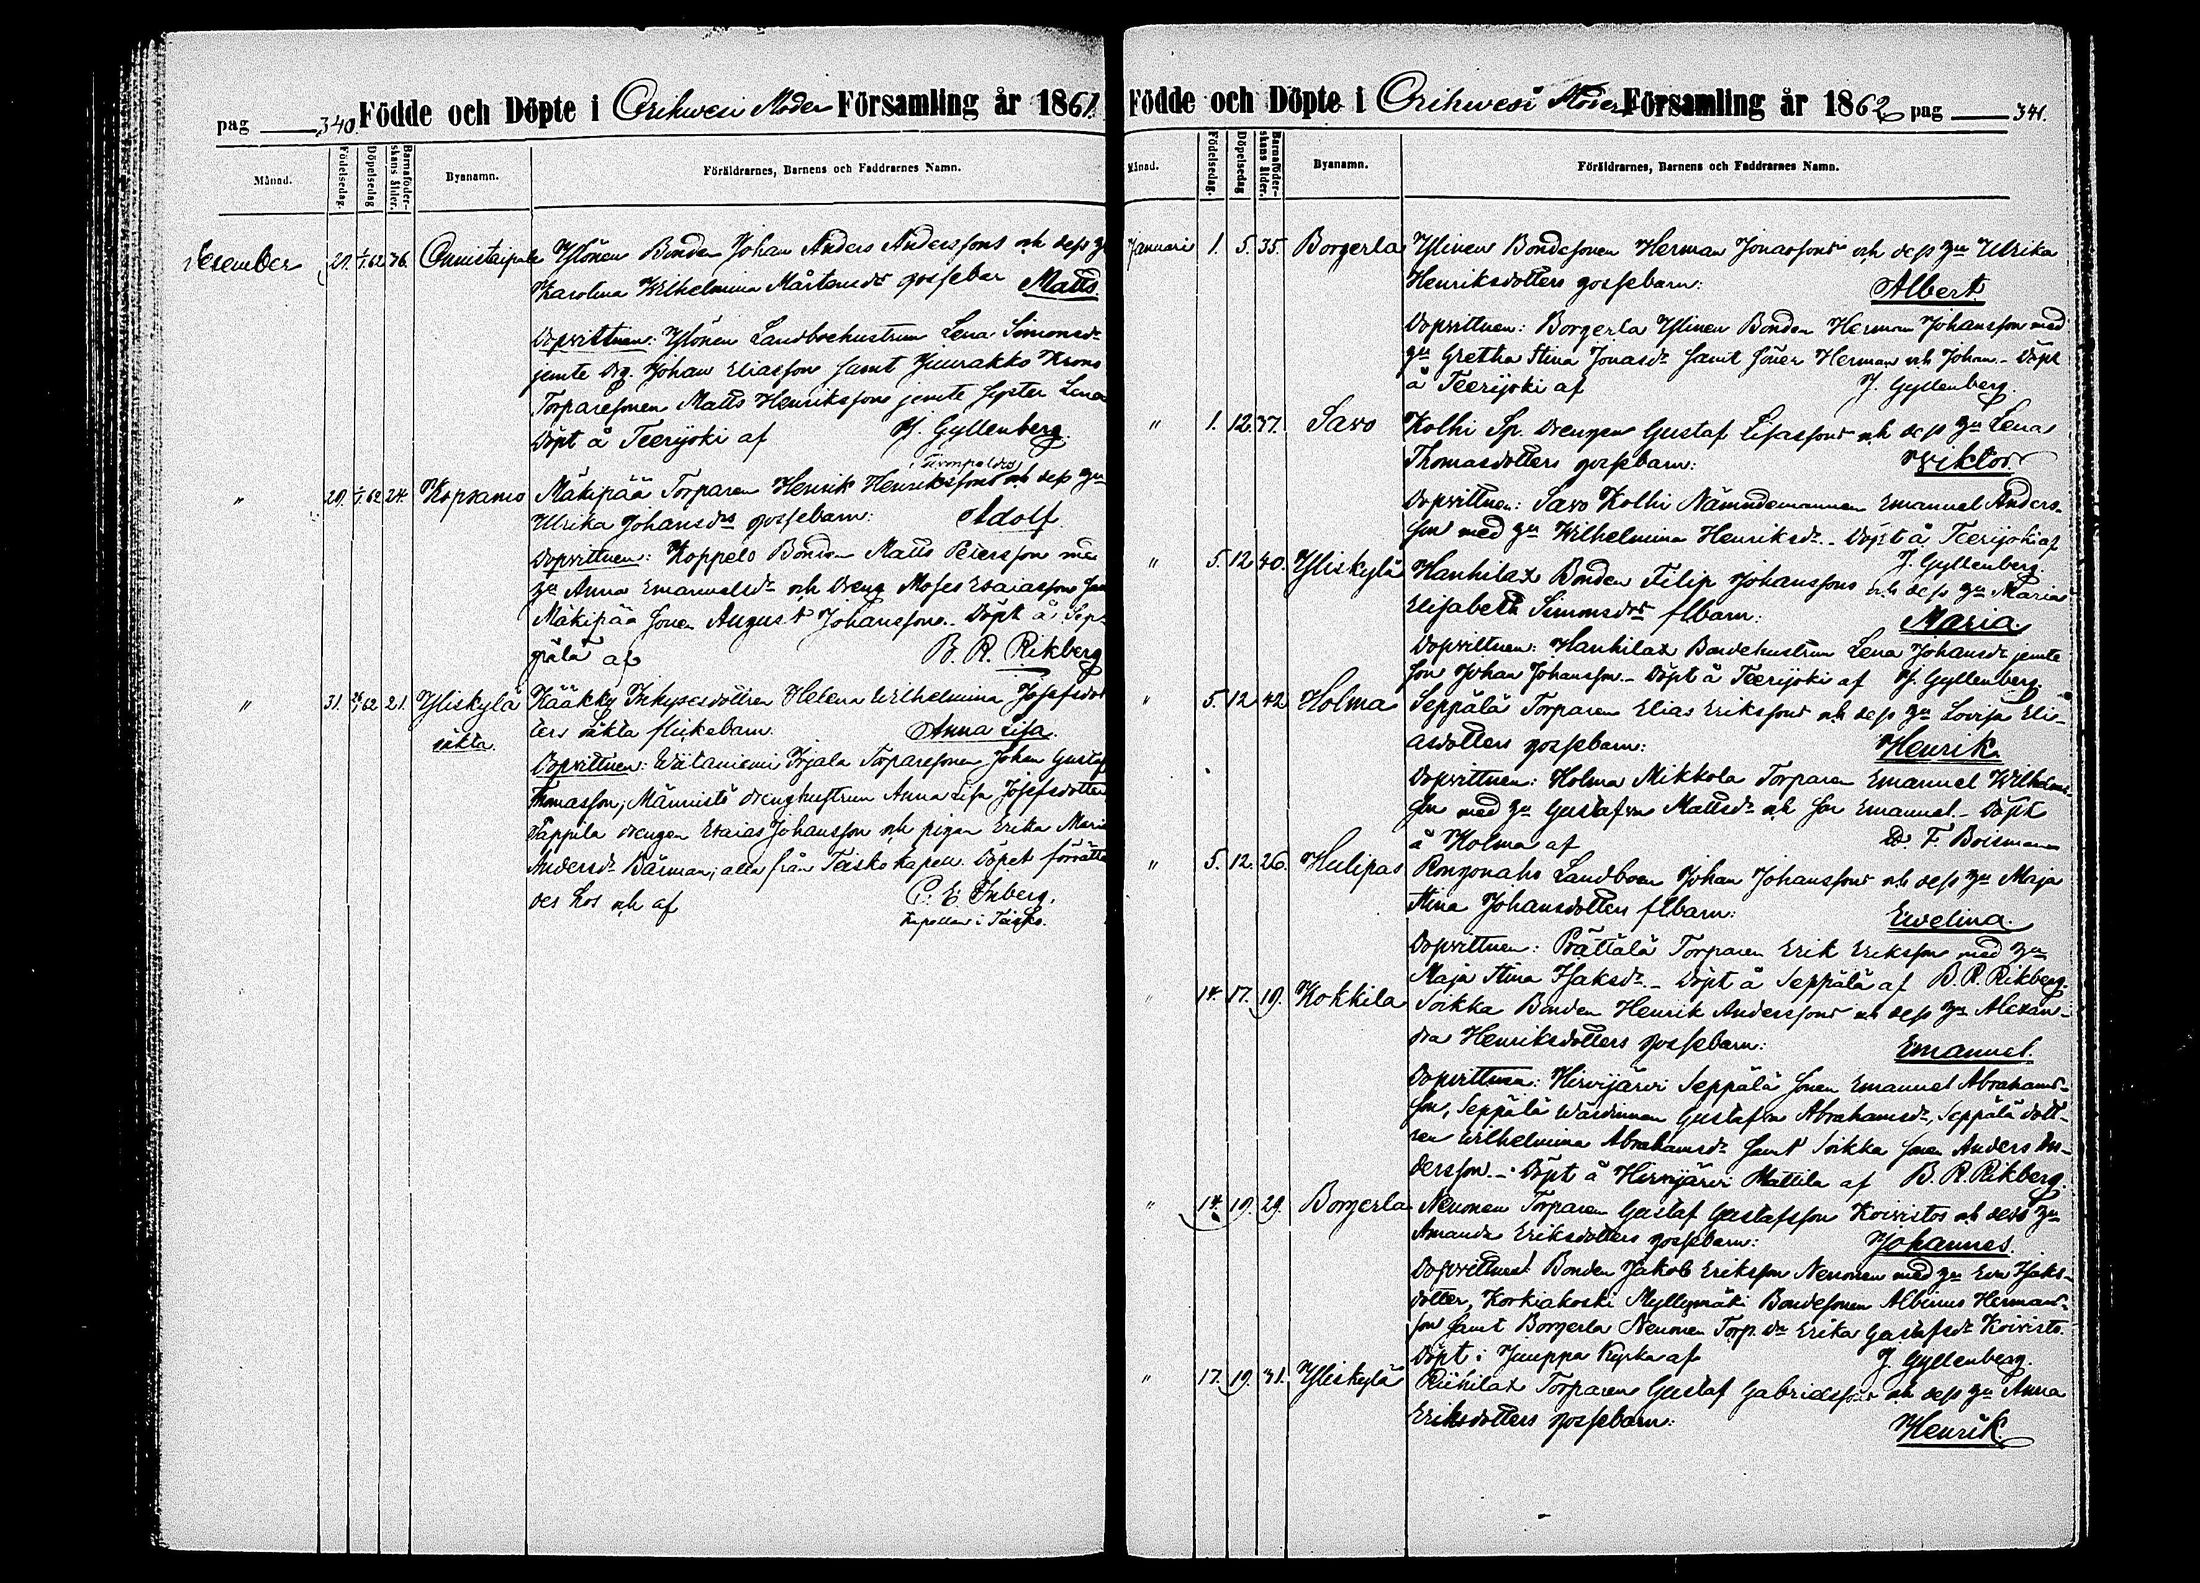 pag 340. Födde och Döpte i Orihwesi Moder Församling år 1861.
Månad. Födelsedag. Döpelsedag Barnaföderskans ålder. Byanamn. Föräldrarnes, Barnens och Faddrarnes Namn.
December 29. 1/1.62 36. Onnistaipale Ylönen Bonden Johan Anders Anderssons och dess
Karolina Wilhelmina Mårtensdr gossebar Matts.
Dopvittnen: Ylönen Landboehustrun Lena Simonsdr
jemte Drg. Johan Eliasson samt Juurakko Krono
Torparesonen Matts Henriksson jemte syster Lena
Döpt å Teerijoki af J. Gyllenberg.
" 29. 1/1.62 24. Kopsamo Mäkipää Torparen Henrik Henrikssons och dess hu
Ulrika Johansdrs gossebarn: Adolf.
Dopvittnen: Koppelo Bonden Matts Petersson me
hu Anna Emanuelsdr och Dreng Moses Esaiasson sam
Mäkipää sonen August Johansson. Döpt å Sep-
pälä af B. R. Rikberg
" 31. 62 21. Yliskylä Kääkky Inhysesdottren Helena Wilhelmina Josefsdot
oäkta. ters oäkta flickebarn. Anna Lisa.
Dopvittnen: Wätaniemi Irjala Torparesonen Johan Gustaf
Thomasson, Männistö drenghustrun Anna Lisa Josefsdotter
Pappila drengen Esaias Johansson och pigan Erika Maria
Andersdr Bärman, alla från Teisko kapell. Döpet förrätta
des hos och af C. E. Inberg,
Kapellan i Teisko.
Födde och Döpte i Orihwesi Moder Församling år 1862. pag 341.
Månad. Födelsedag. Döpelsedag Barnaföderskans ålder. Byanamn. Föräldrarnes, Barnens och Faddrarnes Namn.
Januari 1. 5. 35. Borgerla Ylinen Bondesonen Herman Jonassons och dess hu Ulrika
Henriksdotters gossebarn: Albert
Dopvittnen: Borgerla Ylinen Bonden Herman Johansson med
hu Gretha Stina Jonasdr samt söner Herman och Johan. Döpt
å Teerijoki af J. Gyllenberg.
" 1. 12. 37. Savo Kolhi Sp. Drengen Gustaf Lisassons och dess hu Lena
Thomasdotters gossebarn: Wiktor
Dopvittnen: Savo Kolhi Nämndemannen Emanuel Anders-
son med hu Wilhelmina Henriksdr. Döpt å Teerijoki af
J. Gyllenberg.
" 5. 12 40. Yliskylä Hanhilax Bonden Filip Johanssons och dess hu Maria
Elisabeth Simonsdrs flbarn: Maria.
Dopvittnen: Hanhilax Bondehustrun Lena Johansdr jemte
son Johan Johansson. Döpt å Teerijoki af J. Gyllenberg.
" 5. 12 42 Holma Seppälä Torparen Elias Erikssons och dess hu Lovisa Eli-
asdotters gossebarn: Henrik.
Dopvittnen: Holma Mikkola Torparen Emanuel Wilhelms-
son med hu Gustafva Mattsdr och son Emanuel. Döpt
å Holma af D. F. Boisman
" 5. 12. 26. Hulipas Ronzonaho Landboen Johan Johanssons och dess hu Maja
Stina Johansdotters flbarn: Ewelina.
Dopvittnen: Prättälä Torparen Erik Eriksson med hu
Maja Stina Isaksdr. Döpt å Seppälä af B. R. Rikberg.
" 14. 17. 19. Kokkila Soikka Bonden Henrik Anderssons och dess hu Alexan-
dra Henriksdotters gossebarn: Emanuel.
Dopvittnen: Hirvijärvi Seppälä sonen Emanuel Abrahams-
son, Seppälä Wärdinnan Gustafva Abrahamsdr, Seppälä dott-
ren Wilhelmina Abrahamsdr samt Soikka sonen Anders An-
dersson. Döpt å Hirvijärvi Mattila af B. R. Rikberg.
" 14. 19. 29. Borgerla Nenonen Torparen Gustaf Gustafsson Koivistos och dess hu
Amanda Eriksdotters gossebarn: Johannes.
Dopvittnen: Bonden Jakob Eriksson Nenonen med hu Eva Isaks-
dotter, Korkiakoski Myllymäki Bondesonen Albinus Hermans-
son samt Borgerla Nenonen Torp. dr Erika Gustafsdr Koivisto.
Döpt i Juuppa Kyrka af J. Gyllenberg.
" 17. 19. 31. Yliskylä Riihilax Torparen Gustaf Gabrielssons och dess hu Anna
Eriksdotters gossebarn: Henrik.